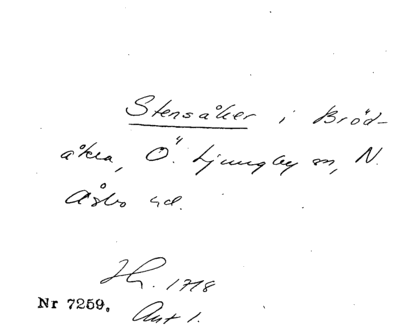 Stensåker i Bröd-
åkra, Ö. Ljungby sn, N.
Åsbo hd.
Jh. 1718
Nr 7259.
Ant 1.